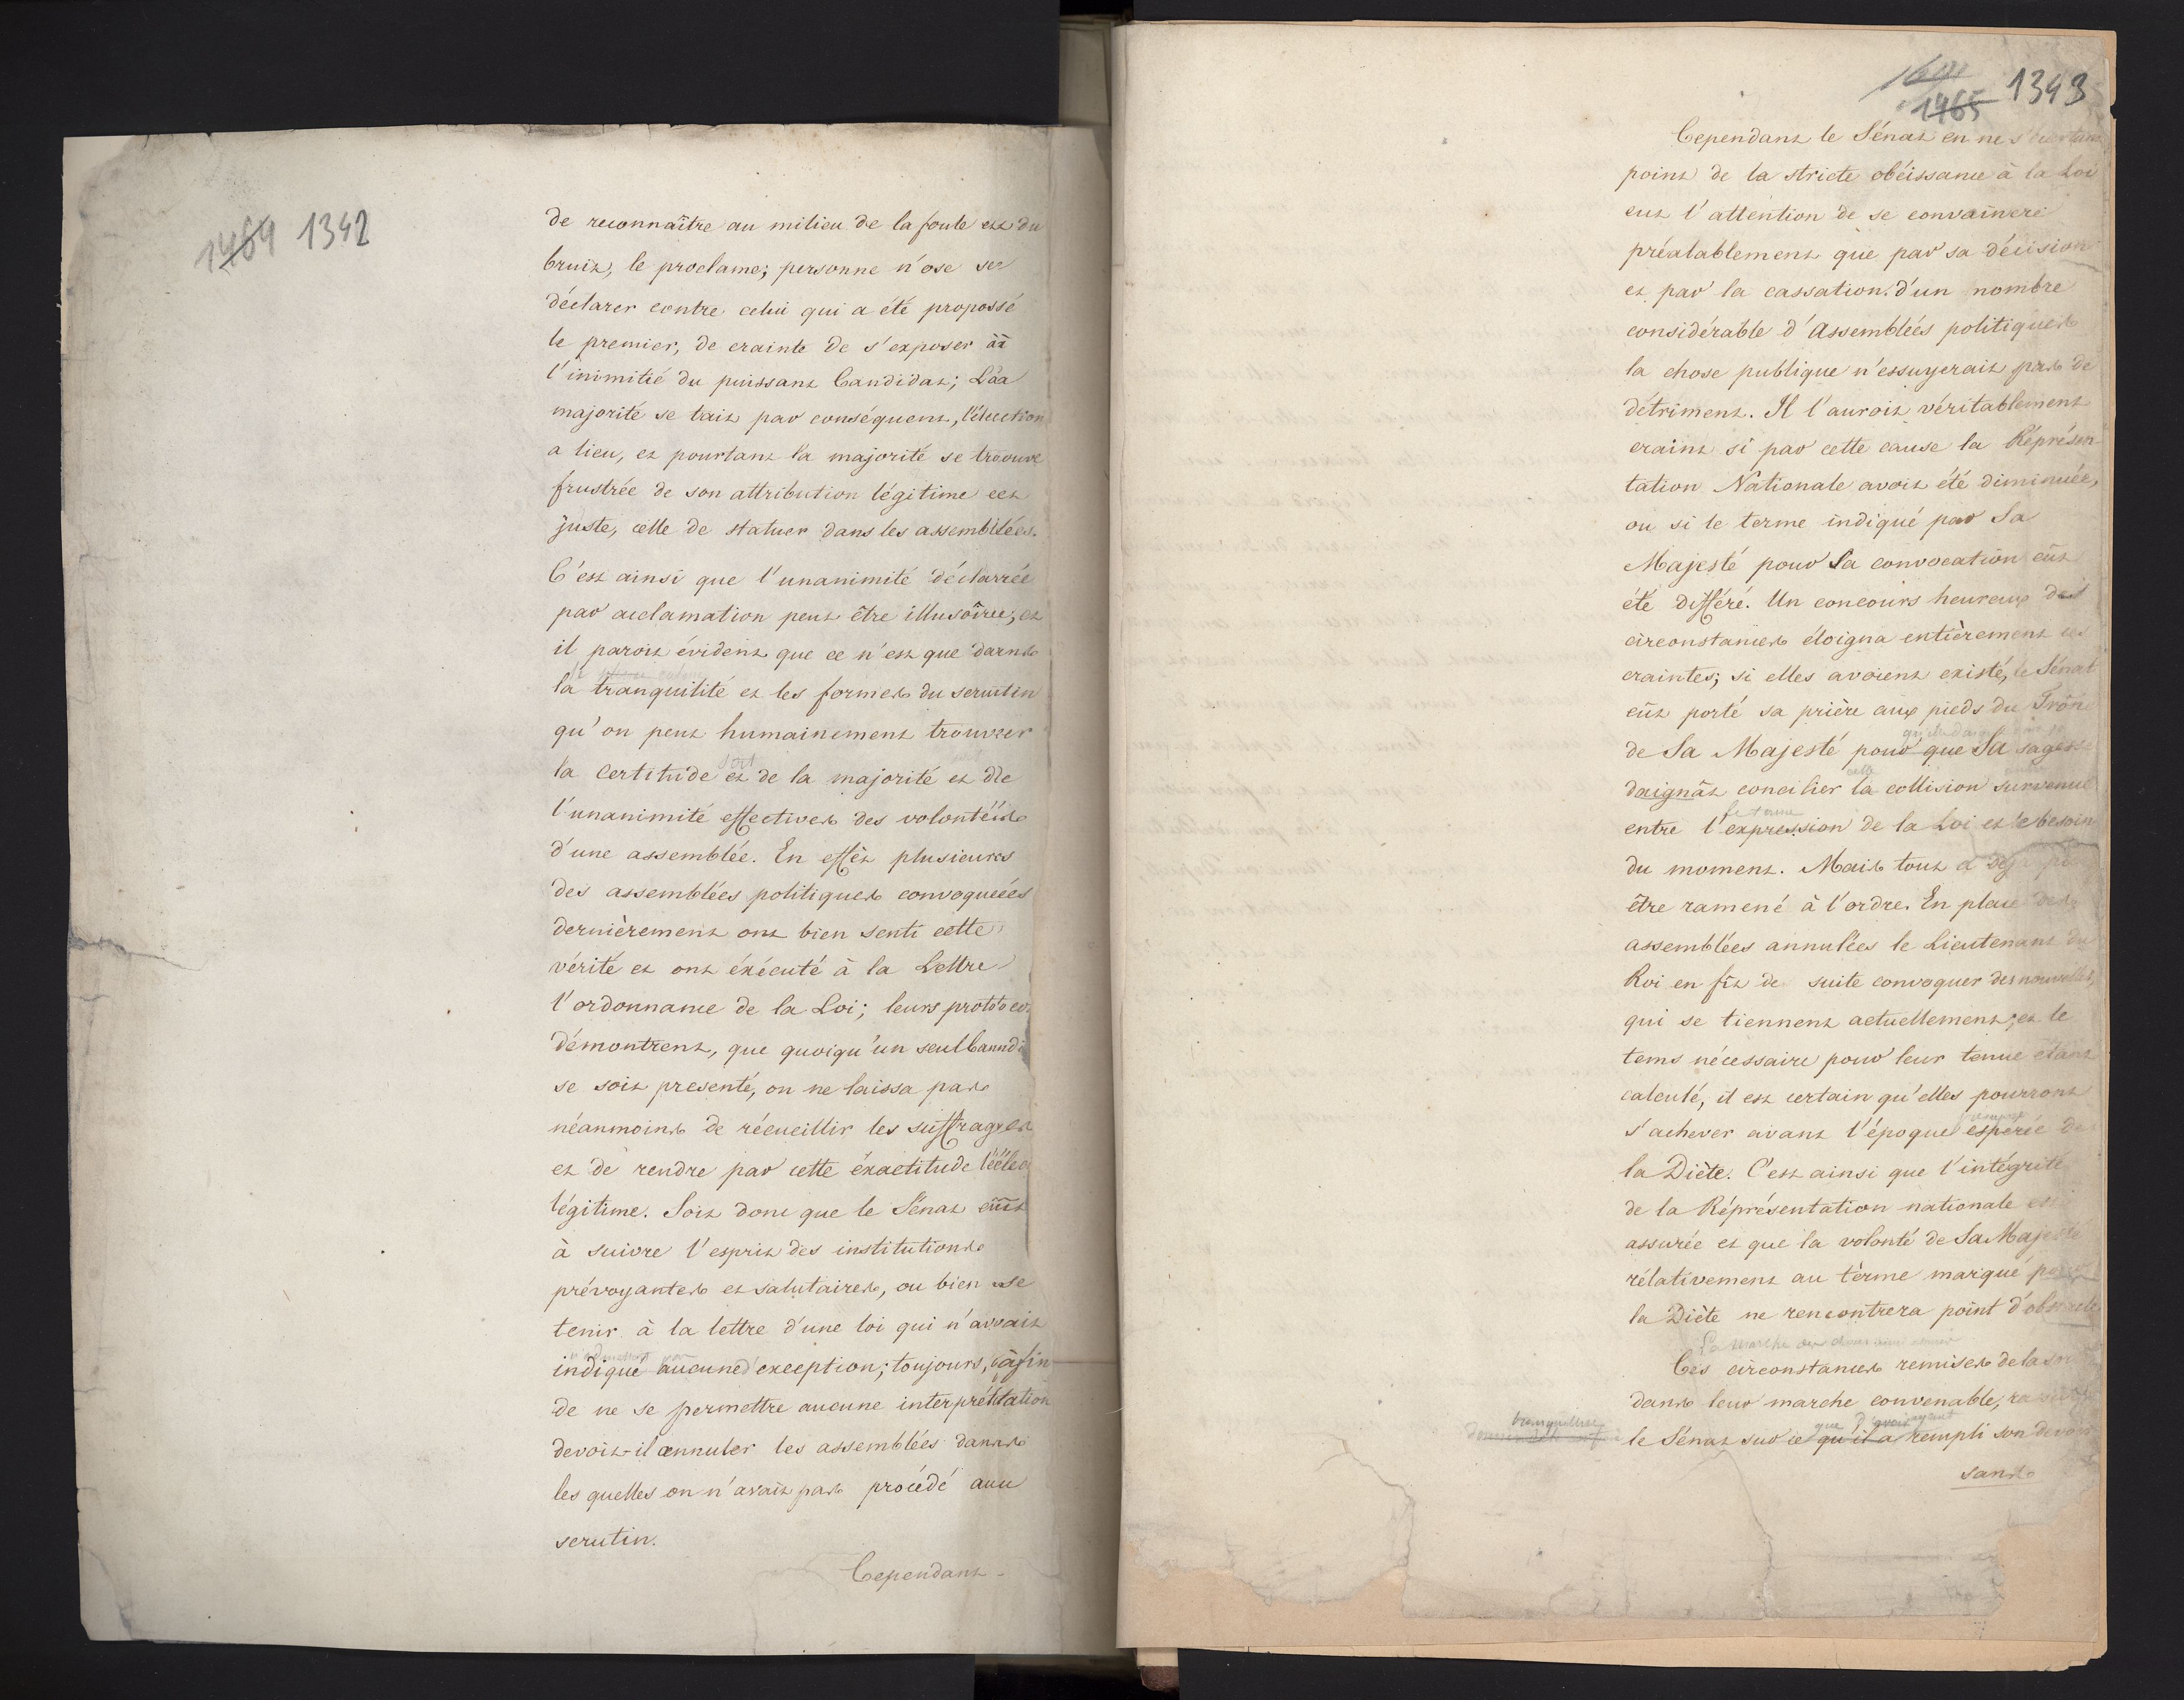 1464 1342
de reconnaître au milieu de la foule et du
bruit, le proclame; personne n'ose se
déclarer contre celui qui a été propossé
le premier, de crainte de s'exposer à
l'inimitié du puissant Candidat; La
majorité se tait par conséquent, l'élection
a lieu, et pourtant la majorité se trouve
frustrée de son attribution légitime et
juste, celle de statuer dans les assemblées.
C'est ainsi que l'unanimité déclarée
par acclamation peut être illusoire, et
il paroit évident que ce n'est que dans
la tranquilité et les formes du scrutin
qu'on peut humainement trouver
soit
la certitude et de la majorité et de
l'unanimité effectives des volontés
d'une assemblée. En effèt plusieurs
des assemblées politiques convoquées
dernièrement ont bien senti cette
vérité et ont éxécuté à la Lettre
l'ordonnance de la Loi; leurs protoco
démontrent, que quoiqu'un seul Candi
se soit presenté, on ne laissa pas
néanmoins de récueillir les suffrages
et de rendre par cette éxactitude l'élec
légitime. Soit donc que le Sénat eût
à suivre l'esprit des institutions
prévoyantes et salutaires, ou bien se
tenir à la lettre d'une loi qui n'avait
indiqué aucune exception; toujours, afin
de ne se permettre aucune interprétation
devoit-il annuler les assemblées dans
les quelles on n'avait pas procédé au
scrutin.
Cependant
1465 1343
Cependant le Sénat en ne s'écartant
point de la stricte obéissance à la Loi
eut l'attention de se convaincre
préalablement que par sa décision
et par la cassation d'un nombre
considérable d'Assemblées politiques
la chose publique n'essuyerait pas de
détriment. Il l'auroit véritablement
craint si par cette cause la Réprésen
tation Nationale avoit été diminuée,
ou si le terme indiqué par Sa
Majesté pour la convocation eût
été différé. Un concours heureux des
circonstances éloigna entièrement ces
craintes; si elles avoient existé, le Sénat
eût porté sa prière aux pieds du Trône
de Sa Majesté pour que Sa sagesse
cette
daignât concilier la collision survenue
entre l'expression de la Loi et le besoin
du moment. Mais tout a
être ramené à l'ordre. En place des
assemblées annulées le Lieutenant du
Roi en fit de suite convoquer des nouvelles,
qui se tiennent actuellement; et le
tems nécessaire pour leur tenue étant
calculé, il est certain qu'elles pourront
s'achever avant l'époque espérée de
la Diète. C'est ainsi que l'intégrité
de la Réprésentation nationale est
assurée et que la volonté de Sa Majesté
rélativement au tèrme marqué pour
la Diète ne rencontrera point d'obstacle
La marche des
Ces circonstances remises de la
dans leur marche convenable,
tranquilise
que
ayant
le Sénat sur ce qu'il a rempli son devoir
sans